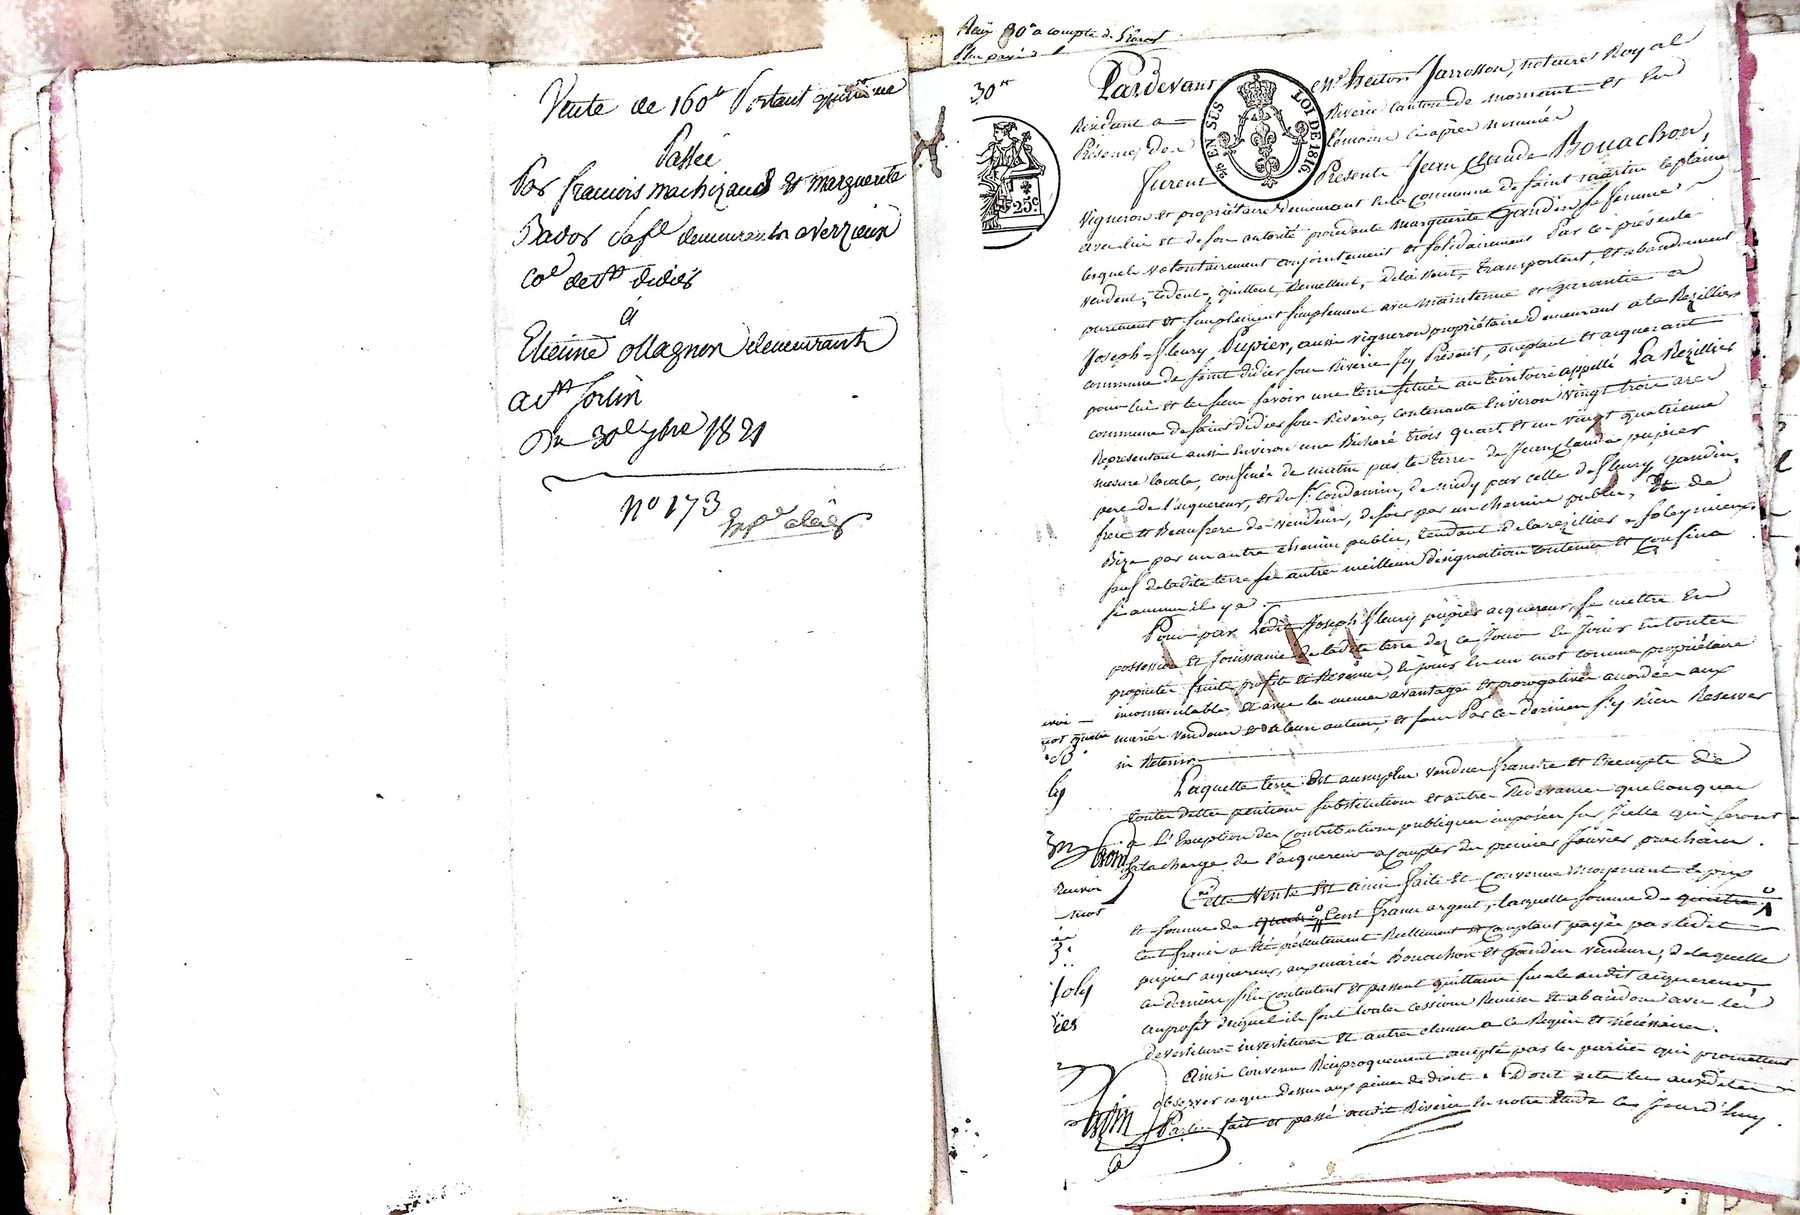 Vente de 160# Portant quittance
Passée
Par francois machizaud et marguerite
Bador Sa fe demeurant a verzieux
Coe de St didier
à
Etienne ollagnon demeurant
a St Sorlin
Du 30 9bre 1821
No 173
30 c
EN SUS
LOI DE 1816.
25c.
Pardevant Me heitor Jarrosson, notaires Royal
Résidant a Riverie canton de mornant et En
Présence des témoins ci après nommés
Furent Présents Jean Claude Bonachon,
vigneron et propriétaire demeurant en la commune de saint martin la plaine
avec lui et de son autorité procédante marguerite Gaudin sa femme
lesquels volontairement conjointement et solidairement Par ces présentes
vendent, cèdent, quittent, Remettent, délaissent, transportent, et abandonnent
purement et simplement avec maintenue et garantie a
Joseph-fleury Pupier, aussi vigneron propriétaire demeurant a la Rezillier
commune de saint didier sous Riverie Icy Présent, acceptant et acquerant
pour lui et les siens savoir une terre située au territoire appellé La Rezillier
commune de saint didier sous Riverie, contenante Environ vingt trois ares
Representant aussi Environ une Bicherée trois quart et un vingt quatrieme
mesure locale, confinée de matin par la terre de Jean Claude pupier
pere de l'acquereur, et du sr. Condamin, de midy par celle de fleury gaudin
frere et Beaufrere des vendeurs, de soir par un chemin public, et de
Bize par un autre chemin public, tendant de la rezillier a soleymieux
sauf de ladite terre ses autres meilleurs désignations contenue et confins
si aucuns il y a.
Pour par Ledit Joseph fleury pupier acquereur, se mettre En
possession et Jouissance de ladite terre dez ce Jour En Jouir En toute
propriété fruits profits et Revenus, le jouir En un mot comme propriétaire
incommutable, et avec les memes avantages et prorogatives accordées aux
mariés vendeurs et a leurs auteurs, et sans Par ces derniers s'y Rien Reserver
ni Retenir.
Laquelle terre Est au surplus vendue franche et Exempte de
toutes dettes pentions substitutions et autres Redevances quelconques
a L'Exception des Contributions publiques imposées sur Icelle qui seront
a la charge de l'acquereur a Compter du premier Janvier prochain.
Cette Vente Est ainsi faite et Convenue moyenant le prix
et somme de quatre Cent francs argent, laquelle somme de quatre
Cent francs a Eté présentement Réellement et Comptant payée par ledit
pupier acquereur, aux mariés Bonachon et Gaudin vendeurs, de laquelle
ces derniers s'En Contentent et passent quittance finale audit acquereur,
au profit duquel ils font toutes cessions Remises et abandon avec les
devestitures investitures et autres clauses a ce Requises et nécessaires.
Ainsi Convenu Réciproquement accepté par les parties qui promettent
observer ce que Dessus aux peines de droit. Dont acte lu auxdites
Parties fait et passé audit Riverie En notre Etude Ce Jourd'huy